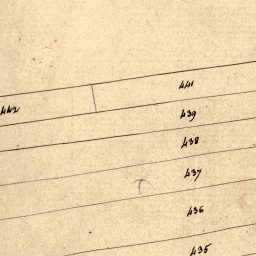 441
442
439
438
437
436
435